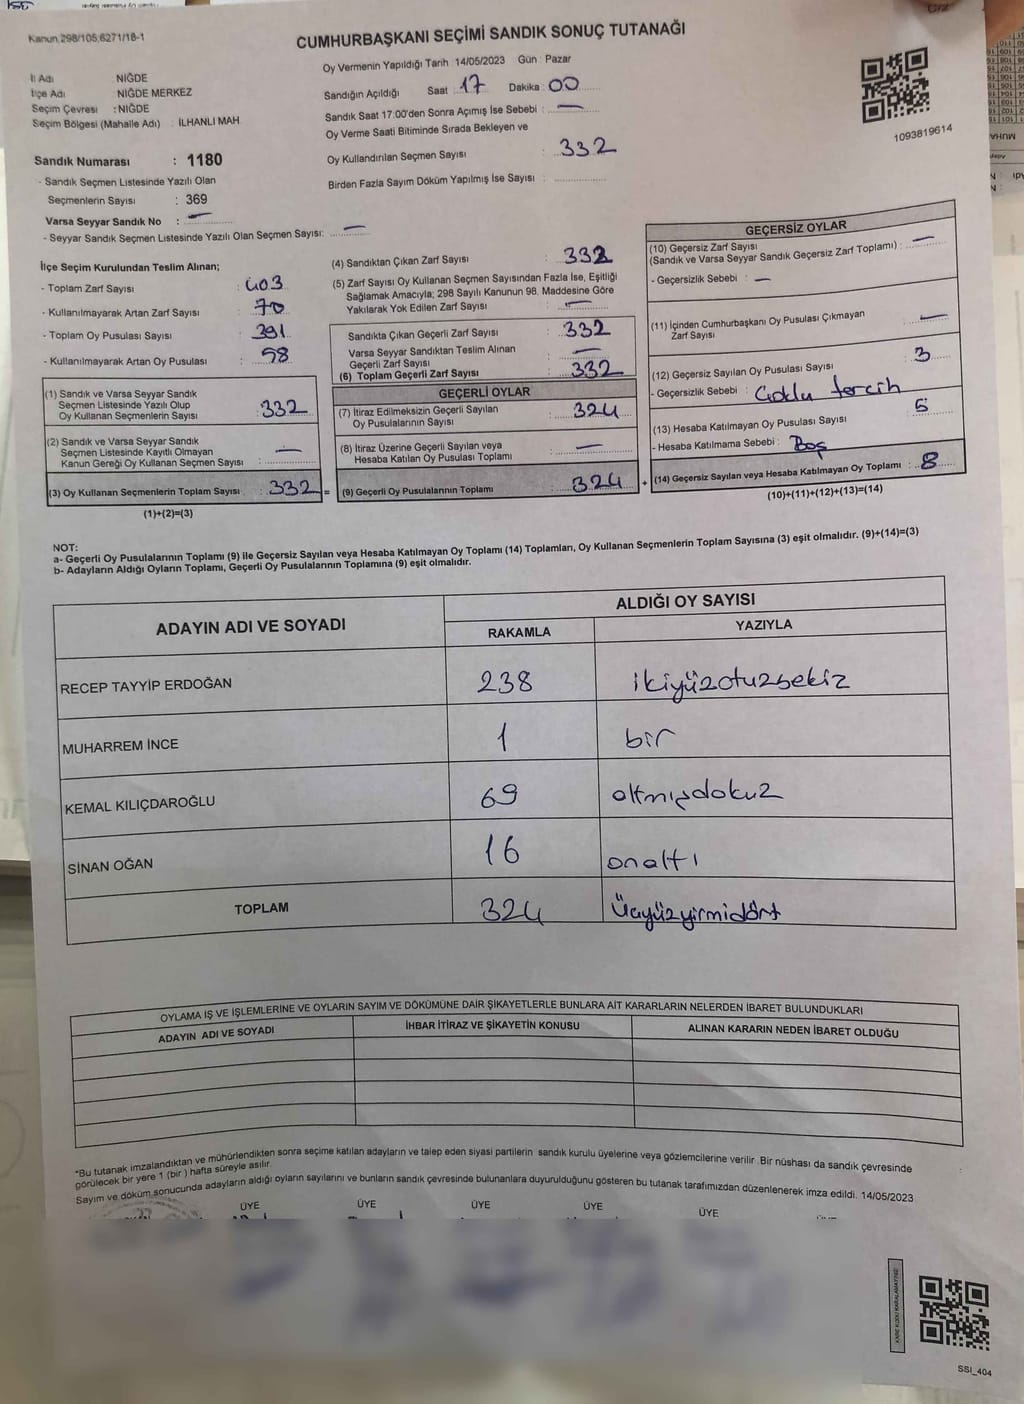 Kanun 298/105,6271/18-1
CUMHURBAŞKANI SEÇİMİ SANDIK SONUÇ TUTANAĞI
İl Adı NİĞDE
İlçe Adı NİĞDE MERKEZ
Seçim Çevresi : NİĞDE
Seçim Bölgesi (Mahalle Adı) : İLHANLI MAH
Sandık Numarası : 1180
- Sandık Seçmen Listesinde Yazılı Olan
Seçmenlerin Sayısı : 369
Varsa Seyyar Sandık No : —
- Seyyar Sandık Seçmen Listesinde Yazılı Olan Seçmen Sayısı: —
Oy Vermenin Yapıldığı Tarih : 14/05/2023 Gün : Pazar
Sandığın Açıldığı Saat : 17 Dakika : 00
Sandık Saat 17.00'den Sonra Açımış İse Sebebi : —
Oy Verme Saati Bitiminde Sırada Bekleyen ve
Oy Kullandırılan Seçmen Sayısı : 332
Birden Fazla Sayım Döküm Yapılmış İse Sayısı :
1093819614
İlçe Seçim Kurulundan Teslim Alınan;
- Toplam Zarf Sayısı : 403
- Kullanılmayarak Artan Zarf Sayısı : 70
- Toplam Oy Pusulası Sayısı : 391
- Kullanılmayarak Artan Oy Pusulası : 58
(1) Sandık ve Varsa Seyyar Sandık
Seçmen Listesinde Yazılı Olup
Oy Kullanan Seçmenlerin Sayısı : 332
(2) Sandık ve Varsa Seyyar Sandık
Seçmen Listesinde Kayıtlı Olmayan
Kanun Gereği Oy Kullanan Seçmen Sayısı : —
(3) Oy Kullanan Seçmenlerin Toplam Sayısı : 332 =
(1)+(2)=(3)
(4) Sandıktan Çıkan Zarf Sayısı : 332
(5) Zarf Sayısı Oy Kullanan Seçmen Sayısından Fazla İse, Eşitliği
Sağlamak Amacıyla; 298 Sayılı Kanunun 98. Maddesine Göre
Yakılarak Yok Edilen Zarf Sayısı : —
Sandıkta Çıkan Geçerli Zarf Sayısı : 332
Varsa Seyyar Sandıktan Teslim Alınan
Geçerli Zarf Sayısı : —
(6) Toplam Geçerli Zarf Sayısı : 332
GEÇERLİ OYLAR
(7) İtiraz Edilmeksizin Geçerli Sayılan
Oy Pusulalarının Sayısı : 324
(8) İtiraz Üzerine Geçerli Sayılan veya
Hesaba Katılan Oy Pusulası Toplamı : —
(9) Geçerli Oy Pusulalarının Toplamı : 324 +
GEÇERSİZ OYLAR
(10) Geçersiz Zarf Sayısı
(Sandık ve Varsa Seyyar Sandık Geçersiz Zarf Toplamı) : —
- Geçersizlik Sebebi : —
(11) İçinden Cumhurbaşkanı Oy Pusulası Çıkmayan
Zarf Sayısı : —
(12) Geçersiz Sayılan Oy Pusulası Sayısı : 3
- Geçersizlik Sebebi : Çoklu tercih
(13) Hesaba Katılmayan Oy Pusulası Sayısı : 5
- Hesaba Katılmama Sebebi : Boş
(14) Geçersiz Sayılan veya Hesaba Katılmayan Oy Toplamı : 8
(10)+(11)+(12)+(13)=(14)
NOT:
a- Geçerli Oy Pusulalarının Toplamı (9) ile Geçersiz Sayılan veya Hesaba Katılmayan Oy Toplamı (14) Toplamları, Oy Kullanan Seçmenlerin Toplam Sayısına (3) eşit olmalıdır. (9)+(14)=(3)
b- Adayların Aldığı Oyların Toplamı, Geçerli Oy Pusulalarının Toplamına (9) eşit olmalıdır.
ADAYIN ADI VE SOYADI ALDIĞI OY SAYISI
RAKAMLA YAZIYLA
RECEP TAYYİP ERDOĞAN 238 ikiyüzotuzsekiz
MUHARREM İNCE 1 bir
KEMAL KILIÇDAROĞLU 69 altmışdokuz
SİNAN OĞAN 16 onaltı
TOPLAM 324 Üçyüzyirmidört
OYLAMA İŞ VE İŞLEMLERİNE VE OYLARIN SAYIM VE DÖKÜMÜNE DAİR ŞİKAYETLERLE BUNLARA AİT KARARLARIN NELERDEN İBARET BULUNDUKLARI
ADAYIN ADI VE SOYADI İHBAR İTİRAZ VE ŞİKAYETİN KONUSU ALINAN KARARIN NEDEN İBARET OLDUĞU
*Bu tutanak imzalandıktan ve mühürlendikten sonra seçime katılan adayların ve talep eden siyasi partilerin sandık kurulu üyelerine veya gözlemcilerine verilir. Bir nüshası da sandık çevresinde
görülecek bir yere 1 (bir ) hafta süreyle asılır.
Sayım ve döküm sonucunda adayların aldığı oyların sayılarını ve bunların sandık çevresinde bulunanlara duyurulduğunu gösteren bu tutanak tarafımızdan düzenlenerek imza edildi. 14/05/2023
ÜYE ÜYE ÜYE ÜYE ÜYE
SSI_404